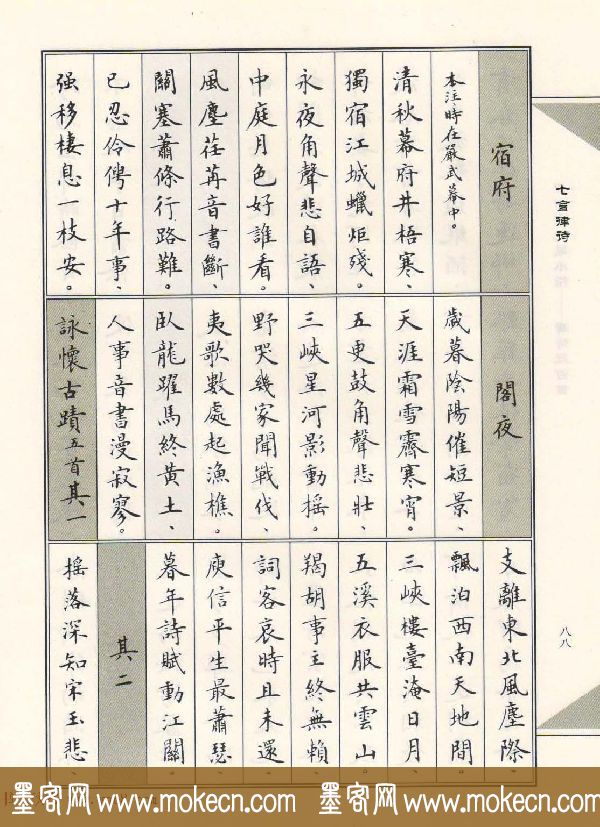 七言律诗
八八
宿府
本注時在嚴武幕中。
清秋幕府井梧寒、
獨宿江城蠟炬殘。
永夜角聲悲自語、
中庭月色好誰看。
風塵荏苒音書斷、
關塞蕭條行路難。
已忍伶俜十年事、
强移棲息一枝安。
閣夜
歲暮陰陽催短景、
天涯霜雪霽寒宵。
五更鼓角聲悲壯、
三峽星河影動摇。
野哭幾家聞戰伐、
夷歌數處起漁樵。
臥龍躍馬終黃土、
人事音書漫寂寥。
詠懷古蹟五首其一
支離東北風塵際、
飄泊西南天地間。
三峽樓臺淹日月、
五溪衣服共雲山。
羯胡事主終無賴、
詞客哀時且未還。
庾信平生最蕭瑟、
暮年詩賦動江關。
其二
摇落深知宋玉悲、
墨客网 www.mokecn.com 墨客网 www.mokecn.com